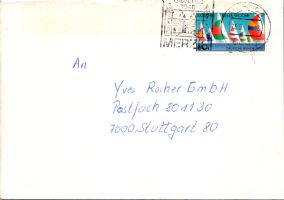 MERZ
An
Yves Rocher GmbH
Postfach 801130
7000 Stuttgart 80